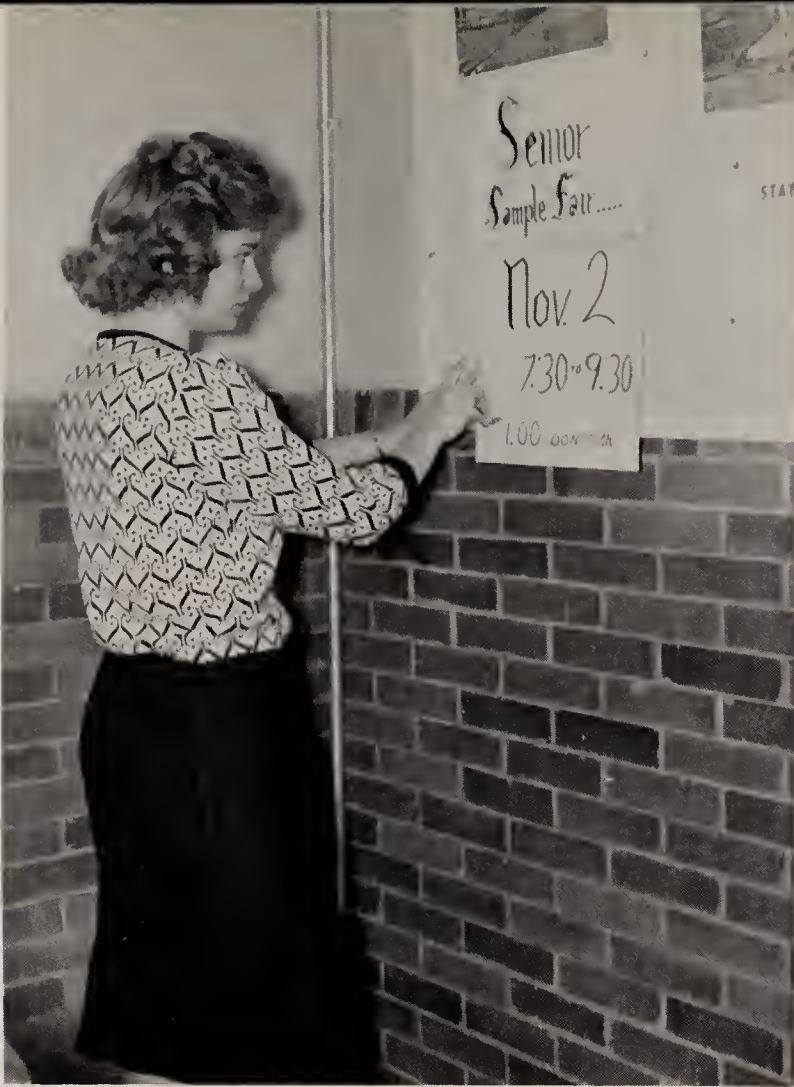 Senior
Sample Fair.....
Nov. 2
7:30 to 9:30
1.00 DONATION
STAY